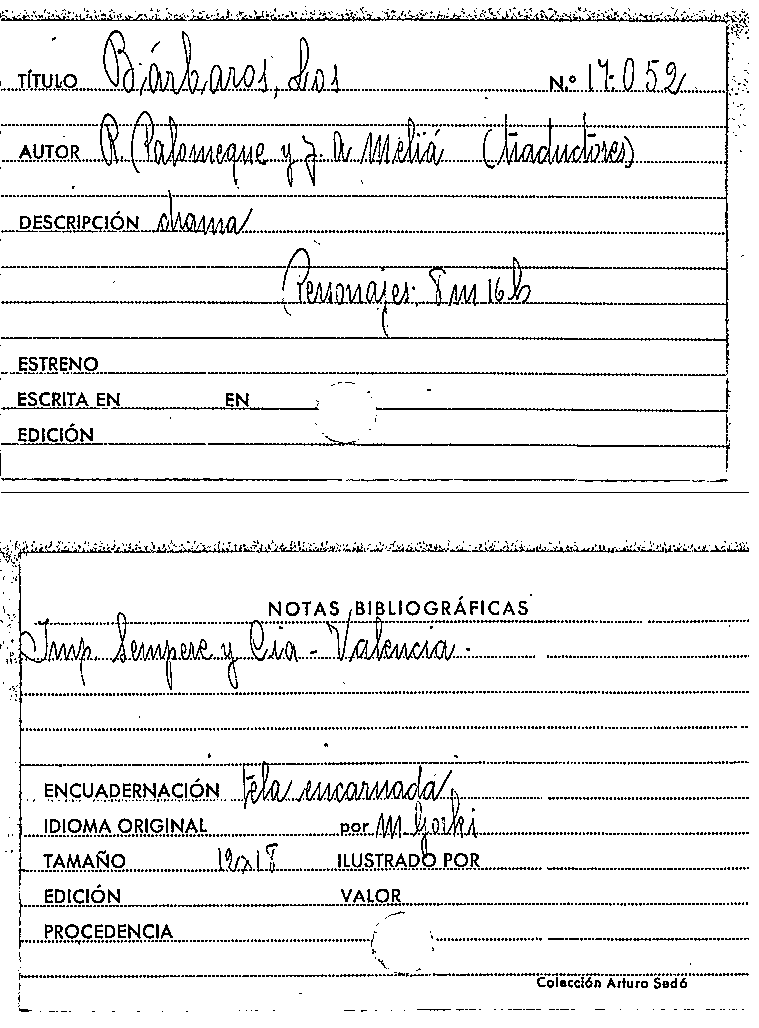 TÍTULO Bárbaros, Los N.º 17.052
AUTOR R. Palomeque y J. A Meliá (traductores)
DESCRIPCIÓN drama
Personajes: 8 m 16 h
ESTRENO
ESCRITA EN EN
EDICIÓN
NOTAS BIBLIOGRÁFICAS
Imp. Sempere y Cia - Valencia.
ENCUADERNACIÓN tela encarnada,
IDIOMA ORIGINAL por M Gorki
TAMAÑO 12x18 ILUSTRADO POR
EDICIÓN VALOR
PROCEDENCIA
Colección Arturo Sedó